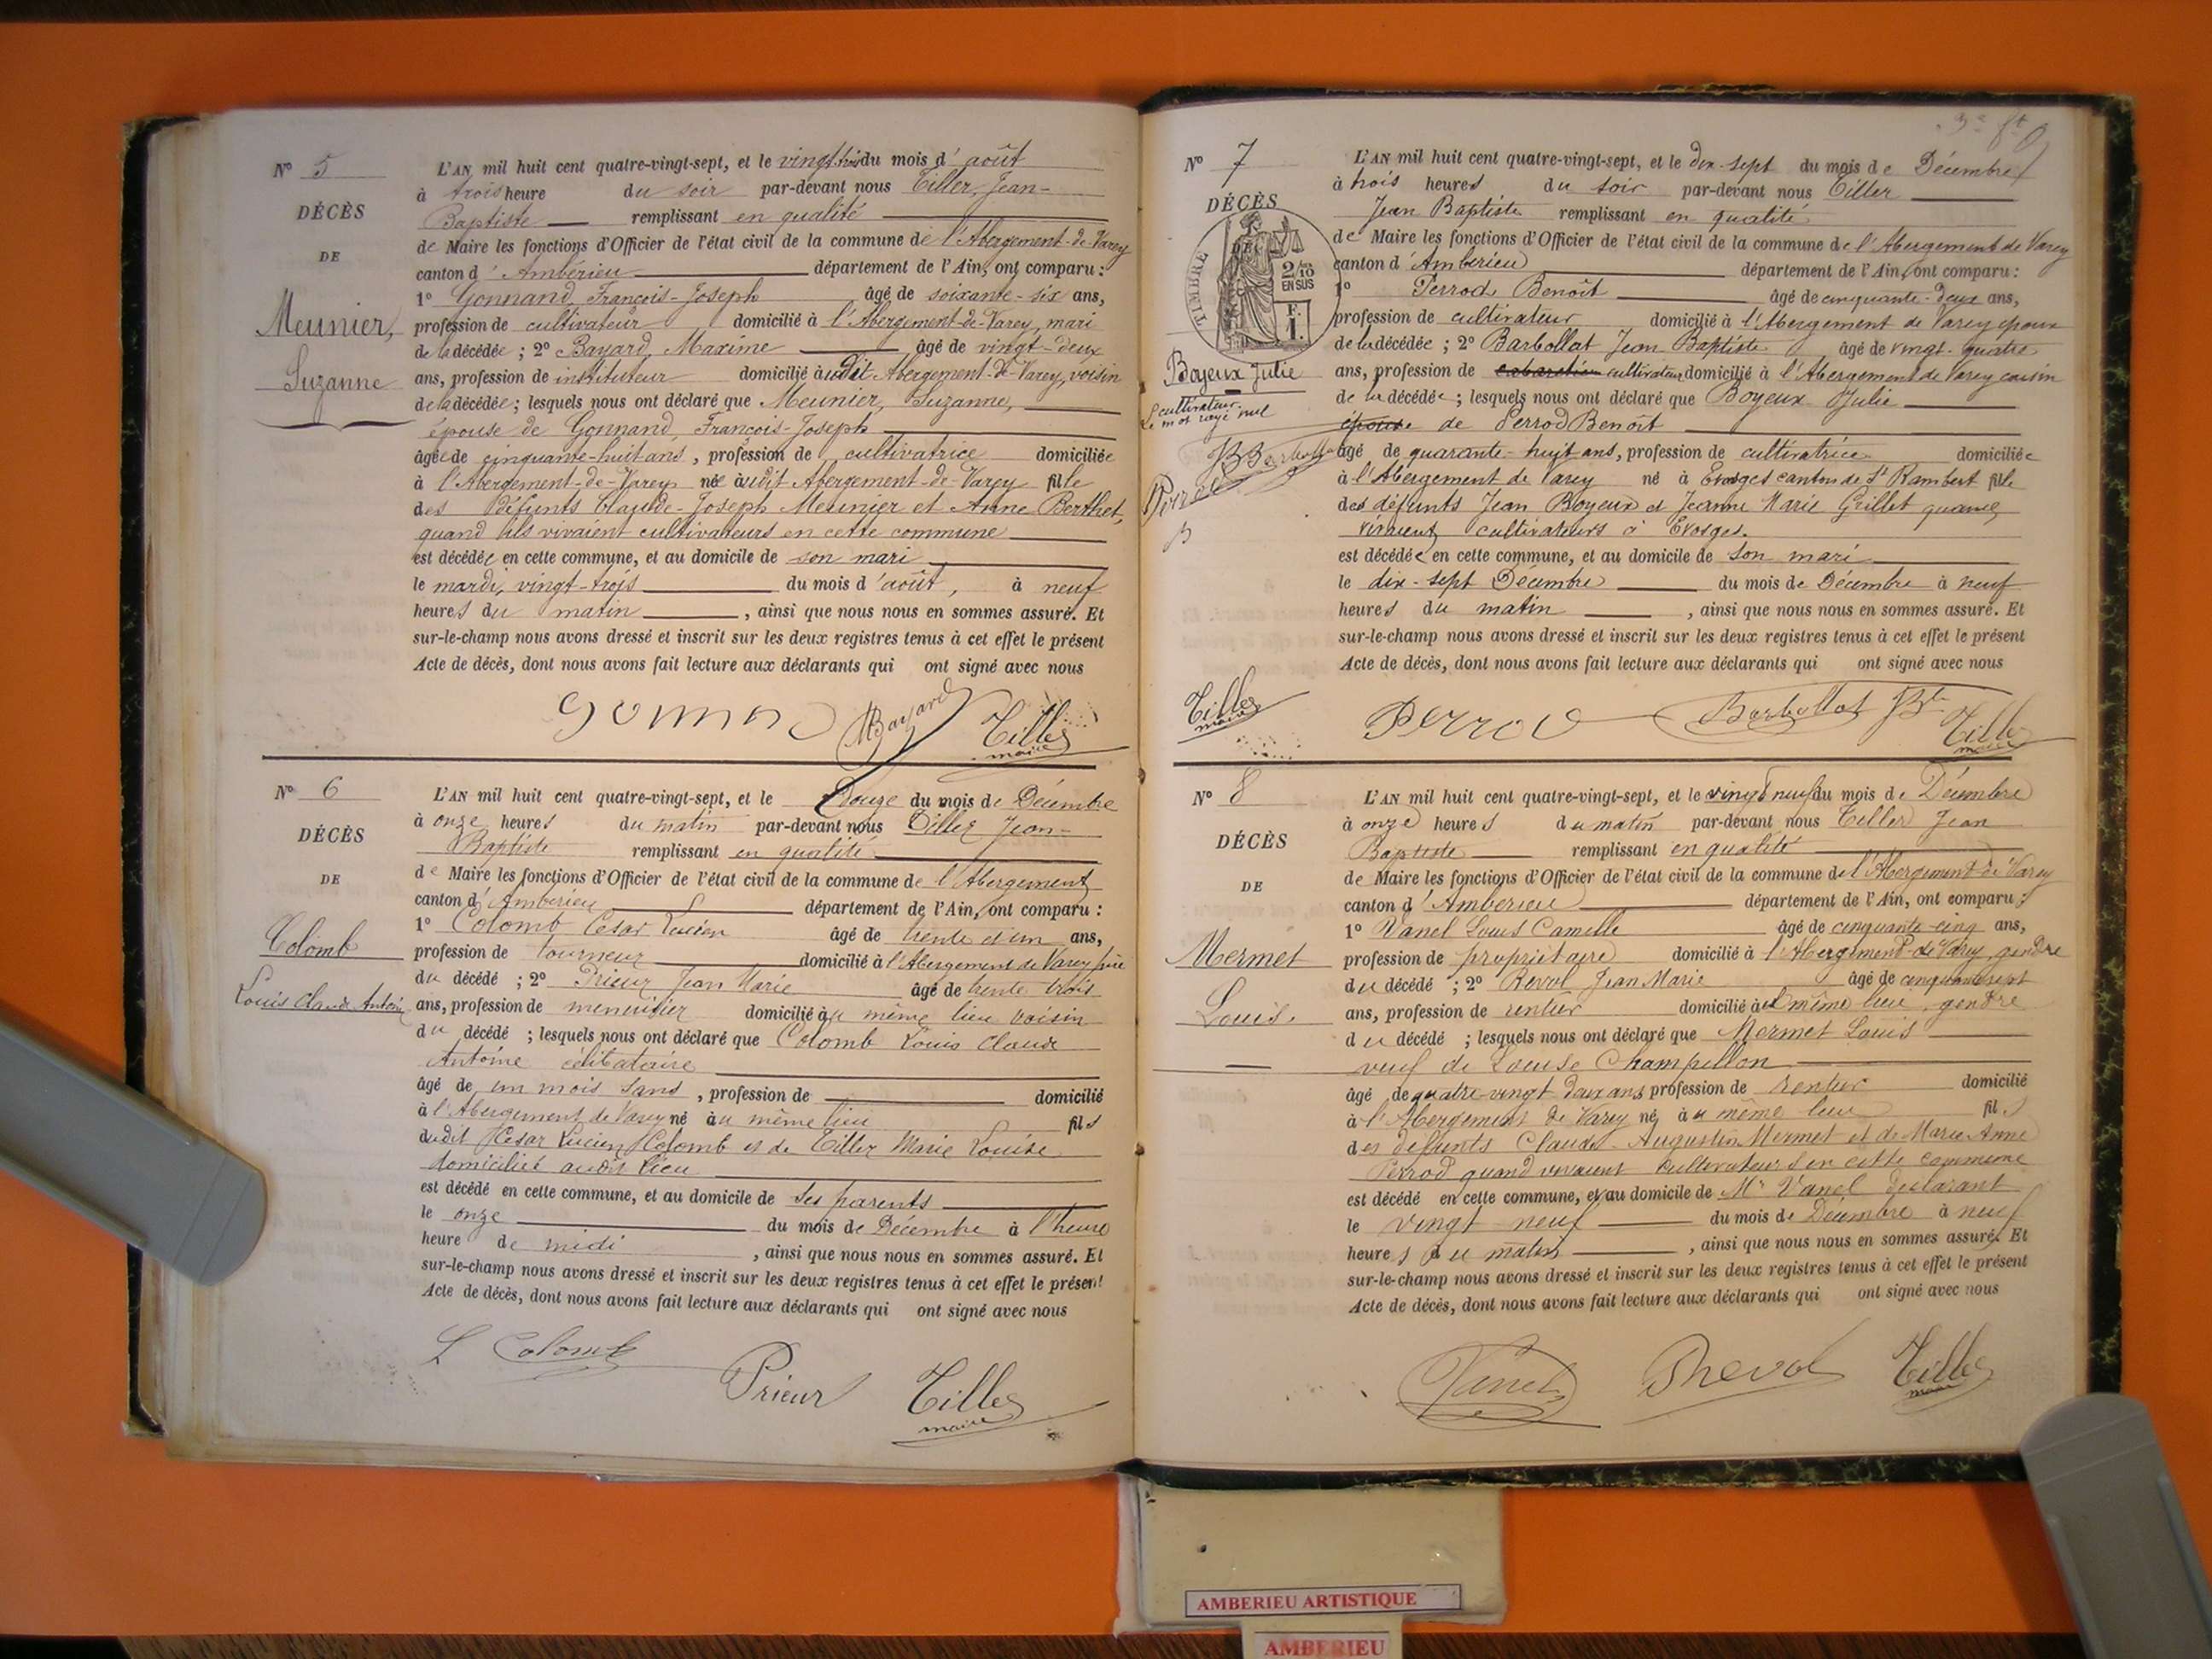 N° 5
DÉCÈS
DE
Meunier,
Suzanne
L'AN mil huit cent quatre-vingt-sept, et le vingt-trois du mois d'août
à trois heure du soir par-devant nous Tiller, Jean-
Baptiste remplissant en qualité
de Maire les fonctions d'Officier de l'état civil de la commune de l'Abergement-de-Varey
canton d'Ambérieu département de l'Ain, ont comparu :
1° Gonnand, François-Joseph âgé de soixante-six ans,
profession de cultivateur domicilié à l'Abergement-de-Varey, mari
de la décédée ; 2° Bayard, Maxime âgé de vingt-deux
ans, profession de instituteur domicilié audit Abergement-de-Varey, voisin
de la décédée ; lesquels nous ont déclaré que Meunier, Suzanne,
épouse de Gonnand, François-Joseph
âgée de cinquante-huit ans, profession de cultivatrice domiciliée
à l'Abergement-de-Varey née audit Abergement-de-Varey fille
des défunts Claude-Joseph Meunier et Anne Berthet,
quand ils vivaient cultivateurs en cette commune
est décédée en cette commune, et au domicile de son mari
le mardi, vingt-trois du mois d'août, à neuf
heures du matin, ainsi que nous nous en sommes assuré. Et
sur-le-champ nous avons dressé et inscrit sur les deux registres tenus à cet effet le présent
Acte de décès, dont nous avons fait lecture aux déclarants qui ont signé avec nous
Gonnand MBayard Tiller
maire
N° 6
DÉCÈS
DE
Colomb
Louis Claude Antoine
L'AN mil huit cent quatre-vingt-sept, et le Douze du mois de Décembre
à onze heures du matin par-devant nous Tiller Jean-
Baptiste remplissant en qualité
de Maire les fonctions d'Officier de l'état civil de la commune de l'Abergement
canton d'Ambérieu département de l'Ain, ont comparu :
1° Colomb César Lucien âgé de trente et un ans,
profession de tourneur domicilié à l'Abergement de Varey père
du décédé ; 2° Prieur Jean Marie âgé de trente trois
ans, profession de menuisier domicilié au même lieu voisin
du décédé ; lesquels nous ont déclaré que Colomb Louis Claude
Antoine célibataire
âgé de un mois sans, profession de domicilié
à l'Abergement de Varey né au même lieu fils
dudit César Lucien Colomb et de Tiller Marie Louise
domiciliés audit lieu
est décédé en cette commune, et au domicile de ses parents
le onze du mois de Décembre à l'heure
heure de midi, ainsi que nous nous en sommes assuré. Et
sur-le-champ nous avons dressé et inscrit sur les deux registres tenus à cet effet le présent
Acte de décès, dont nous avons fait lecture aux déclarants qui ont signé avec nous
L Colomb
Prieur Tiller
maire
N° 7
DÉCÈS
TIMBRE
2/10
EN SUS
F.
1.
Boyeux Julie
cultivateur
Le mot rayé nul
L'AN mil huit cent quatre-vingt-sept, et le dix-sept du mois de Décembre
à trois heures du soir par-devant nous Tiller
Jean Baptiste remplissant en qualité
de Maire les fonctions d'Officier de l'état civil de la commune de l'Abergement de Varey
canton d'Ambérieu département de l'Ain, ont comparu :
1° Perrod Benoît âgé de cinquante-deux ans,
profession de cultivateur domicilié à l'Abergement de Varey époux
de la décédée ; 2° Barbollat Jean Baptiste âgé de vingt-quatre
ans, profession de cultivateur domicilié à l'Abergement de Varey cousin
de la décédée ; lesquels nous ont déclaré que Boyeux Julie
épouse de Perrod Benoît
âgé de quarante-huit ans, profession de cultivatrice domiciliée
à l'Abergement de Varey né à Evosges canton de St Rambert fille
des défunts Jean Boyeux et Jeanne Marie Grillet quand
vivaient cultivateurs à Evosges.
est décédée en cette commune, et au domicile de son mari
le dix-sept Décembre du mois de Décembre à neuf
heures du matin, ainsi que nous nous en sommes assuré. Et
sur-le-champ nous avons dressé et inscrit sur les deux registres tenus à cet effet le présent
Acte de décès, dont nous avons fait lecture aux déclarants qui ont signé avec nous
Tiller
maire
Perrod Barbollat JBte Tiller
maire
N° 8
DÉCÈS
DE
Mermet
Louis.
L'AN mil huit cent quatre-vingt-sept, et le vingt neuf du mois de Décembre
à onze heures du matin par-devant nous Tiller Jean
Baptiste remplissant en qualité
de Maire les fonctions d'Officier de l'état civil de la commune de l'Abergement de Varey
canton d'Ambérieu département de l'Ain, ont comparu :
1° Vanel Louis Camille âgé de cinquante-cinq ans,
profession de propriétaire domicilié à l'Abergement-de-Varey gendre
du décédé ; 2° Revol Jean Marie âgé de cinquante sept
ans, profession de rentier domicilié au même lieu, gendre
du décédé ; lesquels nous ont déclaré que Mermet Louis
veuf de Louise Champillon
âgé de quatre-vingt deux ans profession de rentier domicilié
à l'Abergement de Varey né au même lieu fils
des défunts Claude-Augustin Mermet et de Marie Anne
Perrod quand vivaient cultivateurs en cette commune
est décédé en cette commune, et au domicile de Mr Vanel déclarant
le vingt-neuf du mois de Décembre à neuf
heures du matin, ainsi que nous nous en sommes assuré. Et
sur-le-champ nous avons dressé et inscrit sur les deux registres tenus à cet effet le présent
Acte de décès, dont nous avons fait lecture aux déclarants qui ont signé avec nous
Vanel Revol Tiller
maire
AMBERIEU ARTISTIQUE
AMBERIEU